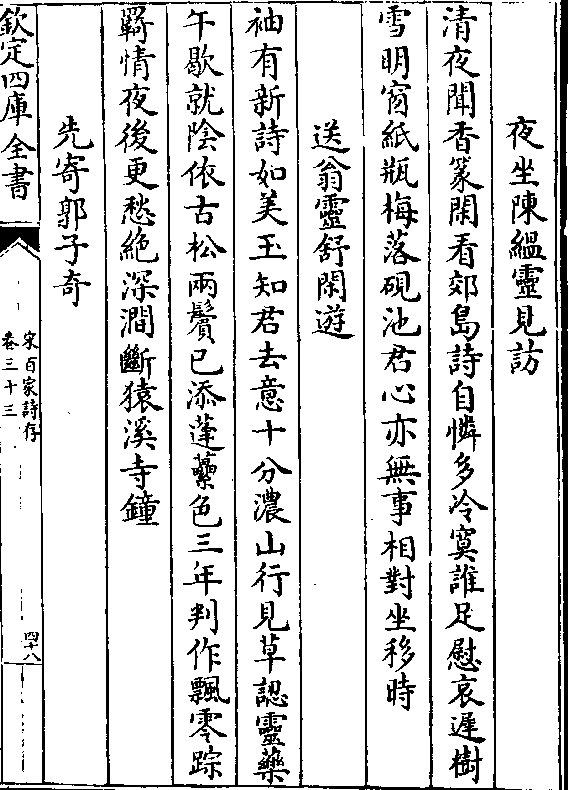 夜坐陳縕靈見訪
清夜聞香篆閑看郊島詩自憐多冷寞誰足慰哀遲樹
雪明窗紙瓶梅落硯池君心亦無事相對坐移時
送翁靈舒閑遊
袖有新詩如美玉知君去意十分濃山行見草認靈藥
午歇就陰依古松兩鬢已添蓬虆色三年判作飄零踪
羇情夜後更愁絶深澗斷猿溪寺鐘
先寄郭子奇
欽定四庫全書
宋百家詩存
卷三十三
四十八